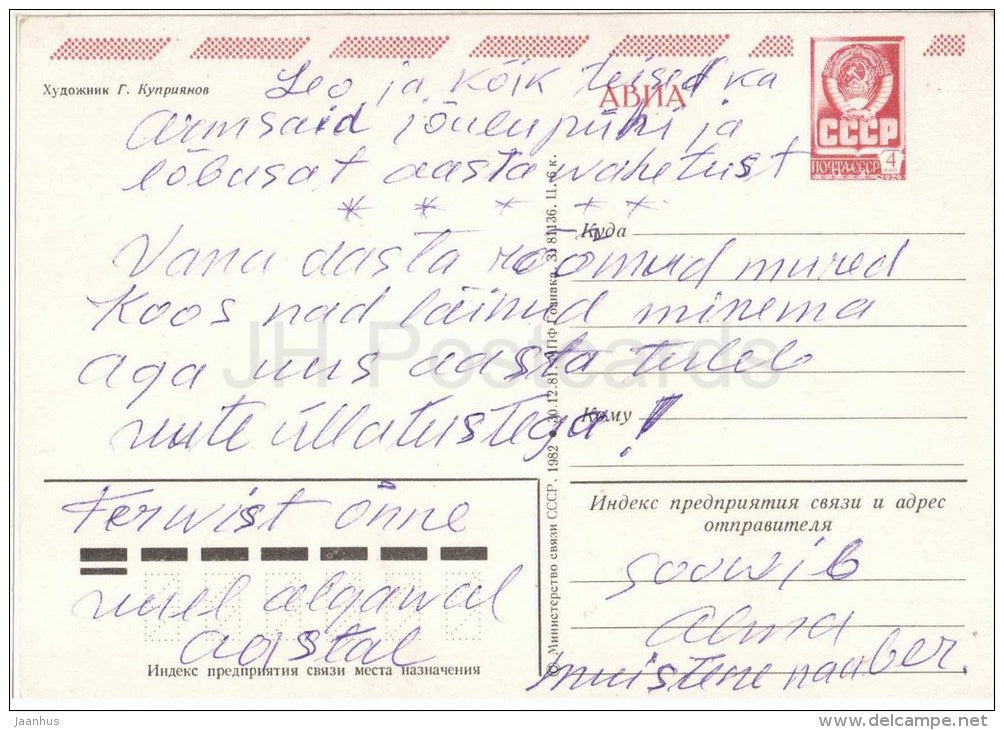 Художник Г. Куприянов
АВИА
СССР
ПОЧТА СССР
4
Leo ja kõik teised ka
armsaid jõulupühi ja
lõbusat aastawahetust
* * * * *
Vana aasta rõõmud mured
Koos nad läinud minema
aga uus aasta tuleb
uute üllatustega!
Terwist õnne
uuel algawal
aastal
soowib
alma
muistene naaber.
Куда
Кому
Индекс предприятия связи и адрес
отправителя
Индекс предприятия связи места назначения
© Министерство связи СССР, 1982 ● 30.12.81. МПФ Гознака. З. 81136. Ц. 6 к.
JH Postcards
jaanhus
www.delcampe.net